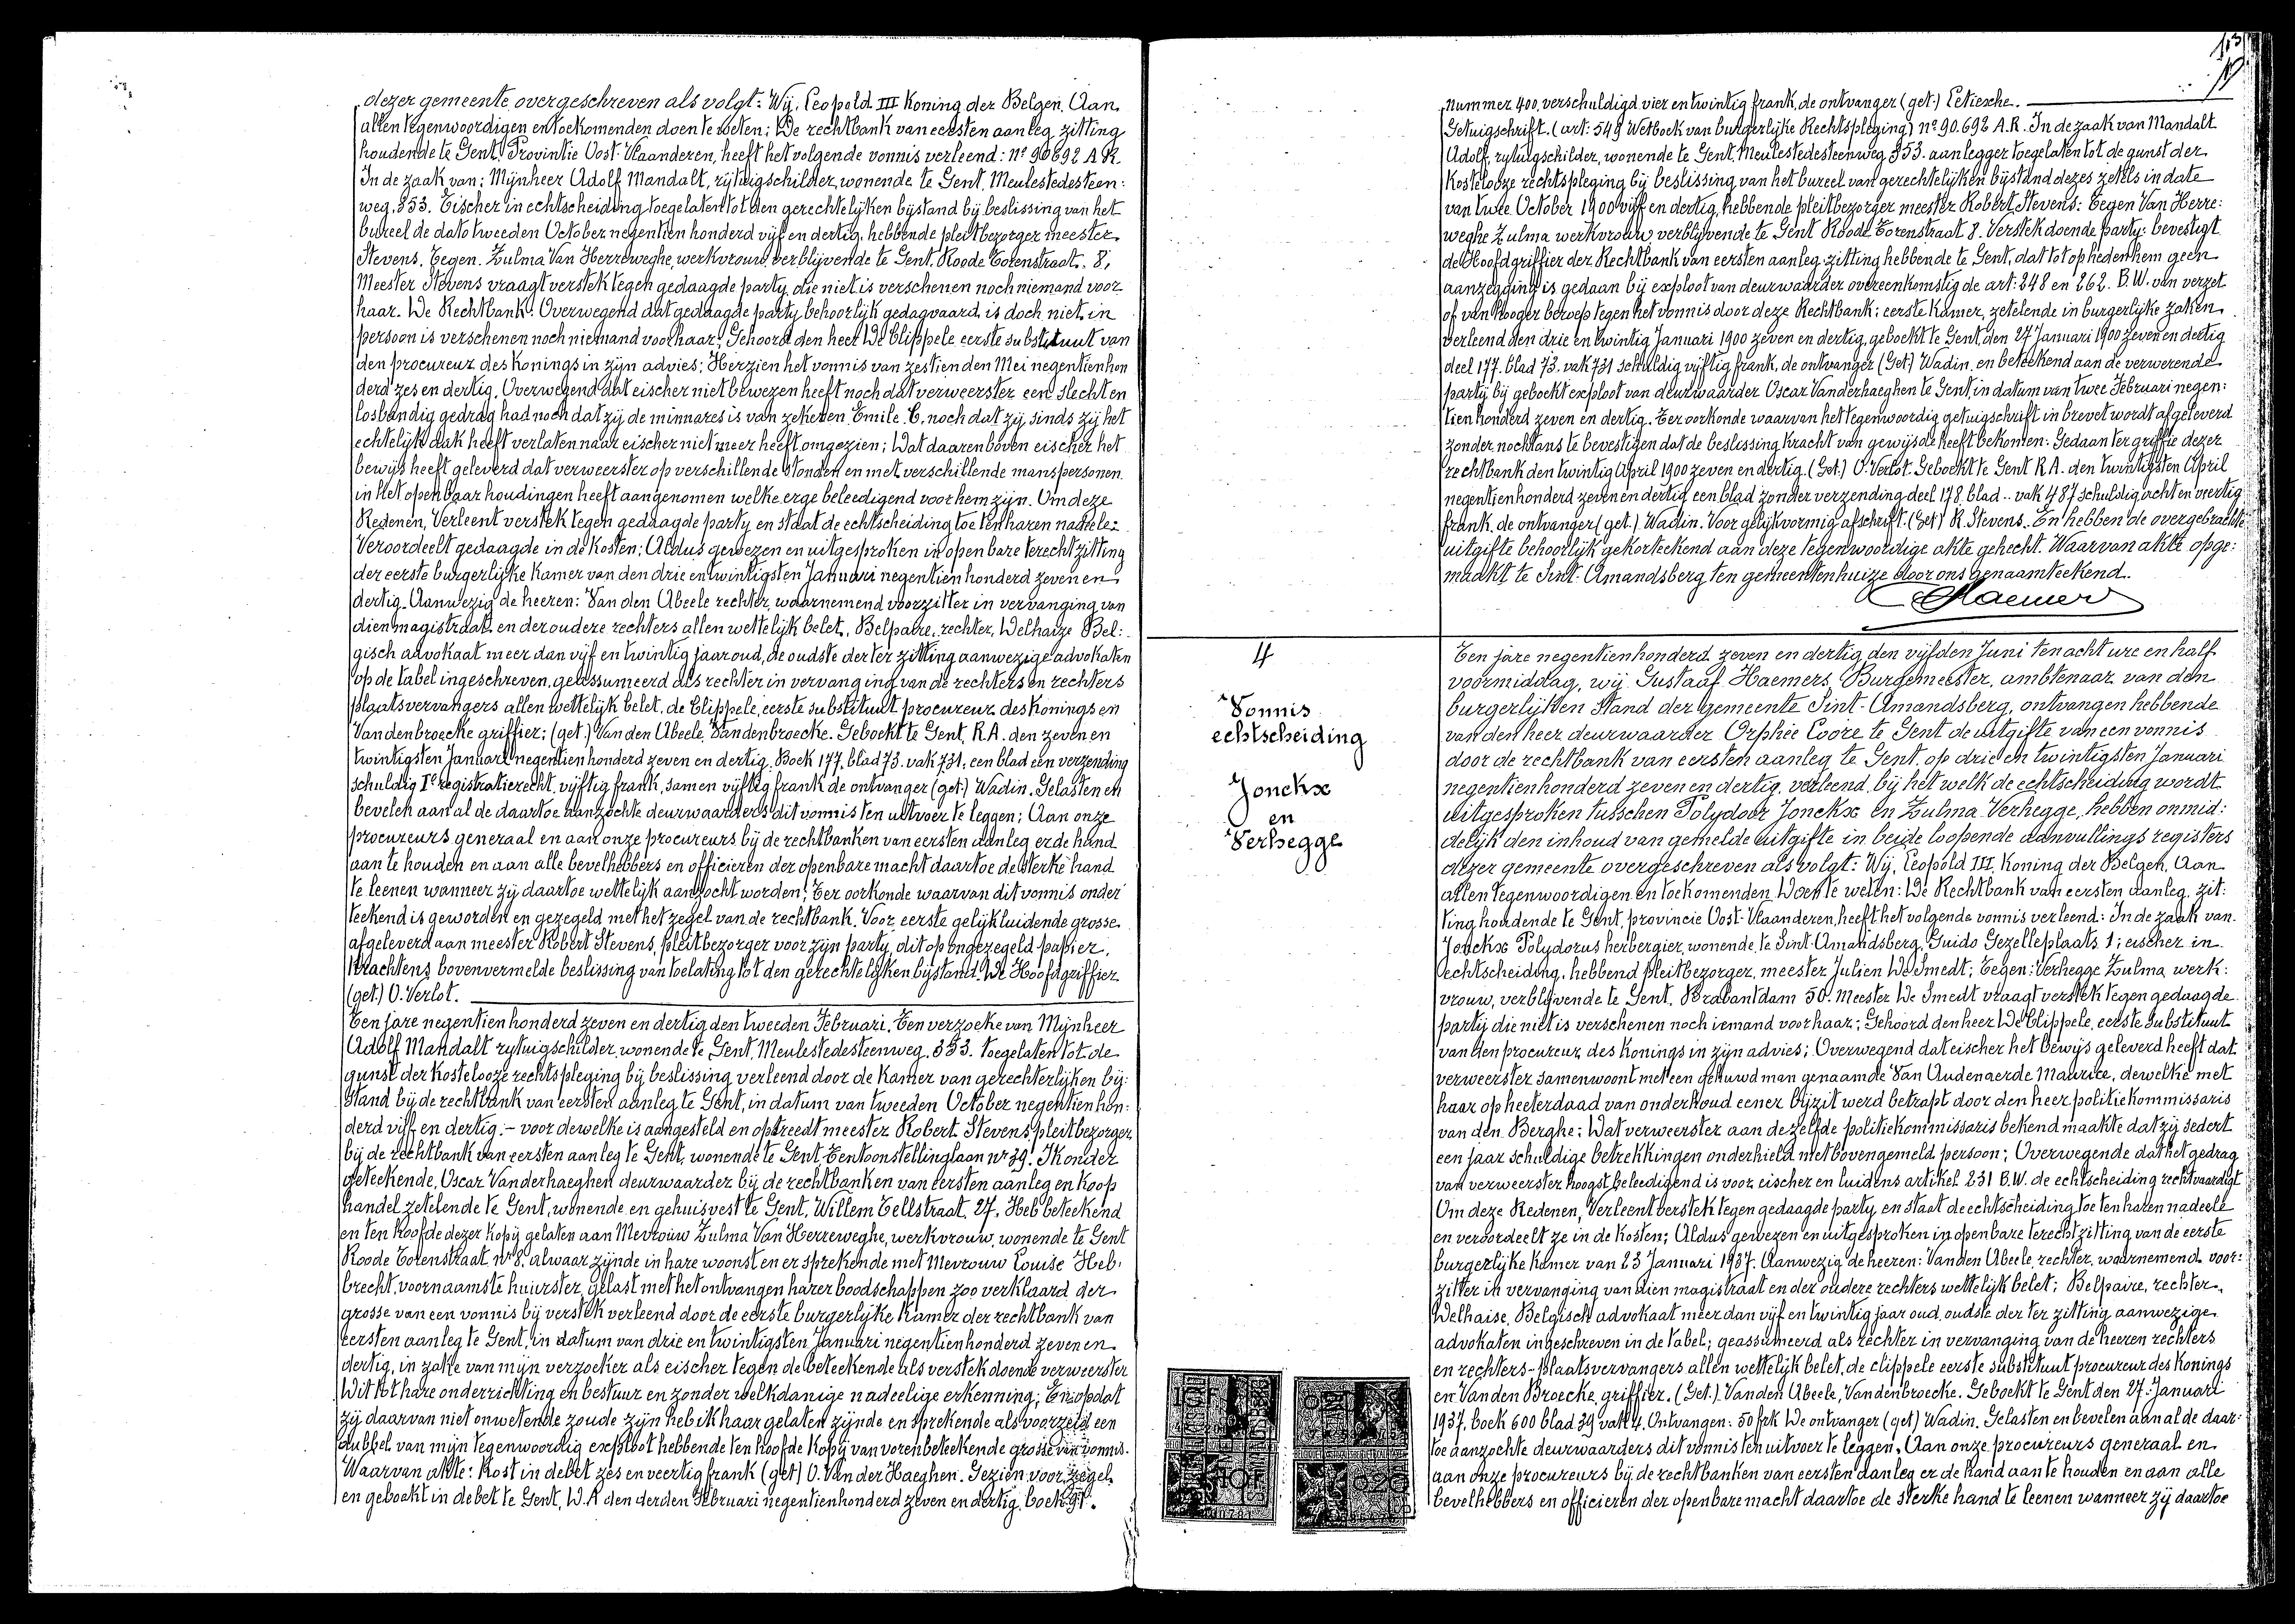 dezer gemeente overgeschreven als volgt: Wij, Leopold III Koning der Belgen. Aan
allen tegenwoordigen en toekomenden doen te weten: De rechtbank van eersten aanleg zitting
houdende te Gent, Provintie Oost-Vlaanderen, heeft het volgende vonnis verleend: nº 90692 A.R.
In de zaak van: Mijnheer Adolf Mandalt, rijtuigschilder, wonende te Gent, Meulestedesteen:
weg, 353. Eischer in echtscheiding toegelaten tot den gerechtelijken bijstand bij beslissing van het
bureel de dato tweeden October negentien honderd vijf en dertig, hebbende pleitbezorger meester
Stevens. Tegen. Zulma Van Herreweghe, werkvrouw, verblijvende te Gent, Roode Torenstraat, 8,
Meester Stevens vraagt verstek tegen gedaagde party die niet is verschenen noch niemand voor
haar. De Rechtbank: Overwegend dat gedaagde party behoorlijk gedagvaard is doch niet in
persoon is verschenen noch niemand voor haar; Gehoord den heer De Clippele eerste substituut van
den procureur des Konings in zijn advies; Herzien het vonnis van zestienden Mei negentienhon
derd zes en dertig. Overwegend dat eischer niet bewezen heeft noch dat verweerster een slecht en
losbandig gedrag had noch dat zij de minnares is van zekeren Emile C. noch dat zij sinds zij het
echtelijk dak heeft verlaten naar eischer niet meer heeft omgezien; Dat daarenboven eischer het
bewijs heeft geleverd dat verweerster op verschillende stonden en met verschillende manspersonen
in het openbaar houdingen heeft aangenomen welke erge beleedigend voor hem zijn. Om deze
Redenen, Verleent verstek tegen gedaagde party en staat de echtscheiding toe ten haren nadeele:
Veroordeelt gedaagde in de kosten; Aldus gewezen en uitgesproken in openbare terechtzitting
der eerste burgerlijke kamer van den drie en twintigsten Januari negentien honderd zeven en
dertig. Aanwezig de heeren: Van den Abeele rechter, waarnemend voorzitter in vervanging van
dien magistraat en der oudere rechters allen wettelijk belet, Belpaire, rechter, Delhaize Bel:
gisch advokaat meer dan vijf en twintig jaar oud, de oudste der ter zitting aanwezige advokaten
op de tabel ingeschreven, geassumeerd als rechter in vervanging van de rechters en rechters
plaatsvervangers allen wettelijk belet. de Clippele, eerste substituut procureur des Konings en
Vandenbroecke griffier; (get.) Van den Abeele, Vandenbroecke. Geboekt te Gent, R.A. den zeven en
twintigsten Januari negentien honderd zeven en dertig. Boek 177, blad 73. vak 731: een blad een verzending
schuldig 1º registratierecht vijftig frank, samen vijftig frank de ontvanger (get.) Wadin. Gelasten en
bevelen aan al de daartoe aanzochte deurwaarders dit vonnis ten uitvoer te leggen; Aan onze
procureurs generaal en aan onze procureurs bij de rechtbanken van eersten aanleg er de hand
aan te houden en aan alle bevelhebbers en officieren der openbare macht daartoe de sterke hand
te leenen wanneer zij daartoe wettelijk aanzocht worden; Ter oorkonde waarvan dit vonnis onder
teekend is geworden en gezegeld met het zegel van de rechtbank. Voor eerste gelijkluidende grosse
afgeleverd aan meester Robert Stevens, pleitbezorger voor zijn party, dit op ongezegeld papier,
Krachtens bovenvermelde beslissing van toelating tot den gerechtelijken bijstand. De Hoofdgriffier
(get.) O. Verlot.
Ten jare negentien honderd zeven en dertig den tweeden Februari. Ten verzoeke van Mijnheer
Adolf Mandalt rytuigschilder, wonende te Gent, Meulestedesteenweg, 353. toegelaten tot de
gunst der kostelooze rechtspleging bij beslissing verleend door de Kamer van gerechterlijken bij:
stand bij de rechtbank van eersten aanleg te Gent, in datum van tweeden October negentienhon:
derd vijf en dertig.- voor dewelke is aangesteld en optreedt meester Robert Stevens, pleitbezorger
bij de rechtbank van eersten aanleg te Gent, wonende te Gent Tentoonstellinglaan nr 39. Ik onder
geteekende, Oscar Vanderhaeghen deurwaarder bij de rechtbanken van eersten aanleg en koop
handel zetelende te Gent, wonende en gehuisvest te Gent, Willem Tellstraat, 27. Heb beteekend
en ten hoofde dezer kopij gelaten aan Mevrouw Zulma Van Herreweghe, werkvrouw, wonende te Gent
Roode Torenstraat, nr 8. alwaar zijnde in hare woonst en er sprekende met Mevrouw Louise Heb,
brecht, voornaamste huurster, gelast met het ontvangen harer boodschappen zoo verklaard der
grosse van een vonnis bij verstek verleend door de eerste burgerlijke Kamer der rechtbank van
eersten aanleg te Gent, in datum van drie en twintigsten Januari negentienhonderd zeven en
dertig, in zake van mijn verzoeker als eischer tegen de beteekende als verstek doende verweerster
Dit tot hare onderrichting en bestuur en zonder welkdanige nadeelige erkenning; En opdat
zij daarvan niet onwetende zoude zijn heb ik haar gelaten zijnde en sprekende als voorzeid een
dubbel van mijn tegenwoordig exploot hebbende ten hoofde kopij van vorenbeteekende grosse van vonnis.
Waarvan akte: kost in debet zes en veertig frank (get) O. Van der Haeghen. Gezien voor zegel
en geboekt in debet te Gent, D.A den derden Februari negentienhonderd zeven en dertig, boek 91.
113
nummer 400, verschuldigd vier en twintig frank, de ontvanger (get.)
Getuigschrift. (art: 548 Wetboek van burgerlijke Rechtspleging) nº 90.692 A.R. In de zaak van Mandalt
Adolf, rytuigschilder, wonende te Gent, Meulestedesteenweg 353. aanlegger toegelaten tot de gunst der
kostelooze rechtspleging bij beslissing van het bureel van gerechtelijken bijstand dezes zetels in date
van twee October 1900 vijf en dertig, hebbende pleitbezorger meester Robert Stevens: Tegen Van Herre:
weghe Zulma werkvrouw, verblijvende te Gent Roode Torenstraat 8. Verstekdoende party: bevestigt
de Hoofdgriffier der Rechtbank van eersten aanleg zitting hebbende te Gent, dat tot op heden hem geen
aanzegging is gedaan bij exploot van deurwaarder overeenkomstig de art: 248 en 262. B.W. van verzet
of van hooger beroep tegen het vonnis door deze Rechtbank; eerste Kamer, zetelende in burgerlijke zaken
verleend den drie en twintig Januari 1900 zeven en dertig, geboekt te Gent, den 27 Januari 1900 zeven en dertig
deel 177. blad 73. vak 731 schuldig vijftig frank, de ontvanger (Get) Wadin, en beteekend aan de verwerende
party bij geboekt exploot van deurwaarder Oscar Vanderhaeghen te Gent, in datum van twee Februari negen:
tien honderd zeven en dertig. Ter oorkonde waarvan het tegenwoordig getuigschrift in brevet wordt afgeleverd
zonder nochtans te bevestigen dat de beslissing kracht van gewijsde heeft bekomen: Gedaan ter griffie dezer
rechtbank den twintig April 1900 zeven en dertig. (Get.) O. Verlot. Geboekt te Gent R.A. den twintigsten April
negentienhonderd zeven en dertig een blad zonder verzending deel 178 blad .. vak 487 schuldig acht en veertig
frank, de ontvanger (get.) Wadin. Voor gelijkvormig afschrift. (Get) R. Stevens. En hebben de overgebrachte
uitgifte behoorlijk gekorteekend aan deze tegenwoordige akte gehecht. Waarvan akte opge:
maakt te Sint-Amandsberg ten gemeentenhuize door ons genaamteekend.
Haemers
4
Vonnis
echtscheiding
Jonckx
en
Verhegge
Ten jare negentienhonderd zeven en dertig den vijfden Juni ten acht ure en half
voormiddag, wij Gustaaf Haemers, Burgemeester, ambtenaar van den
burgerlijken Stand der gemeente Sint-Amandsberg, ontvangen hebbende
van den heer deurwaarder Orphée Evore te Gent de uitgifte van een vonnis
door de rechtbank van eersten aanleg te Gent, op drie en twintigsten Januari
negentienhonderd zeven en dertig, verleend, bij het welk de echtscheiding wordt
uitgesproken tusschen Polydoor Jonckx en Zulma Verhegge, hebben onmid:
delijk den inhoud van gemelde uitgifte in beide loopende aanvullings registers
dezer gemeente overgeschreven als volgt: Wij, Leopold III, Koning der Belgen, Aan
allen tegenwoordigen en toekomenden Doen te weten: De Rechtbank van eersten aanleg, zit:
ting houdende te Gent, provincie Oost-Vlaanderen, heeft het volgende vonnis verleend: In de zaak van
Jonckx Polydorus herbergier, wonende te Sint-Amandsberg, Guido Gezelleplaats 1; eischer in
echtscheiding, hebbend pleitbezorger, meester Julien De Smedt; Tegen: Verhegge Zulma werk:
vrouw, verblijvende te Gent, Brabantdam 50. Meester De Smedt vraagt verstek tegen gedaagde
partij die niet is verschenen noch iemand voor haar; Gehoord den heer De Clippele, eerste substituut
van den procureur des Konings in zijn advies; Overwegend dat eischer het bewijs geleverd heeft dat
verweerster samenwoont met een gehuwd man genaamde Van Audenaerde Maurice, dewelke met
haar op heeterdaad van onderhoud eener bijzit werd betrapt door den heer politiekommissaris
van den Berghe; Dat verweerster aan dezelfde politiekommissaris bekend maakte dat zij sedert
een jaar schuldige betrekkingen onderhield met bovengemeld persoon; Overwegende dat het gedrag
van verweerster hoogst beleedigend is voor eischer en luidens artikel 231 B.W. de echtscheiding rechtvaardigt
Om deze Redenen, Verleent verstek tegen gedaagde party en staat de echtscheiding toe ten haren nadeele
en veroordeelt ze in de kosten; Aldus gewezen en uitgesproken in openbare terechtzitting van de eerste
burgerlijke kamer van 23 Januari 1937. Aanwezig de heeren: Van den Abeele, rechter, waarnemend voor:
zitter in vervanging van dien magistraat en der oudere rechters wettelijk belet; Belpaire, rechter,
Delhaise, Belgisch advokaat meer dan vijf en twintig jaar oud, oudste der ter zitting aanwezige
advokaten ingeschreven in de tabel; geassumeerd als rechter in vervanging van de heeren rechters
en rechters-plaatsvervangers allen wettelijk belet, de clippele eerste substituut procureur des Konings
en Vanden Broecke, griffier. (Get.) Vanden Abeele, Vandenbroecke. Geboekt te Gent den 27. Januari
1937, boek 600 blad 39 vak 4. Ontvangen: 50 frk De ontvanger (get) Wadin. Gelasten en bevelen aan al de daar:
toe aanzochte deurwaarders dit vonnis ten uitvoer te leggen, Aan onze procureurs generaal en
aan onze procureurs bij de rechtbanken van eersten aanleg er de hand aan te houden en aan alle
bevelhebbers en officieren der openbare macht daartoe de sterke hand te leenen wanneer zij daartoe